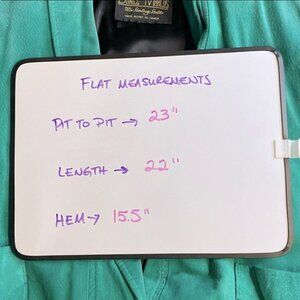 FLAT MEASUREMENTS
PIT TO PIT → 23"
LENGTH → 22"
HEM → 15.5"